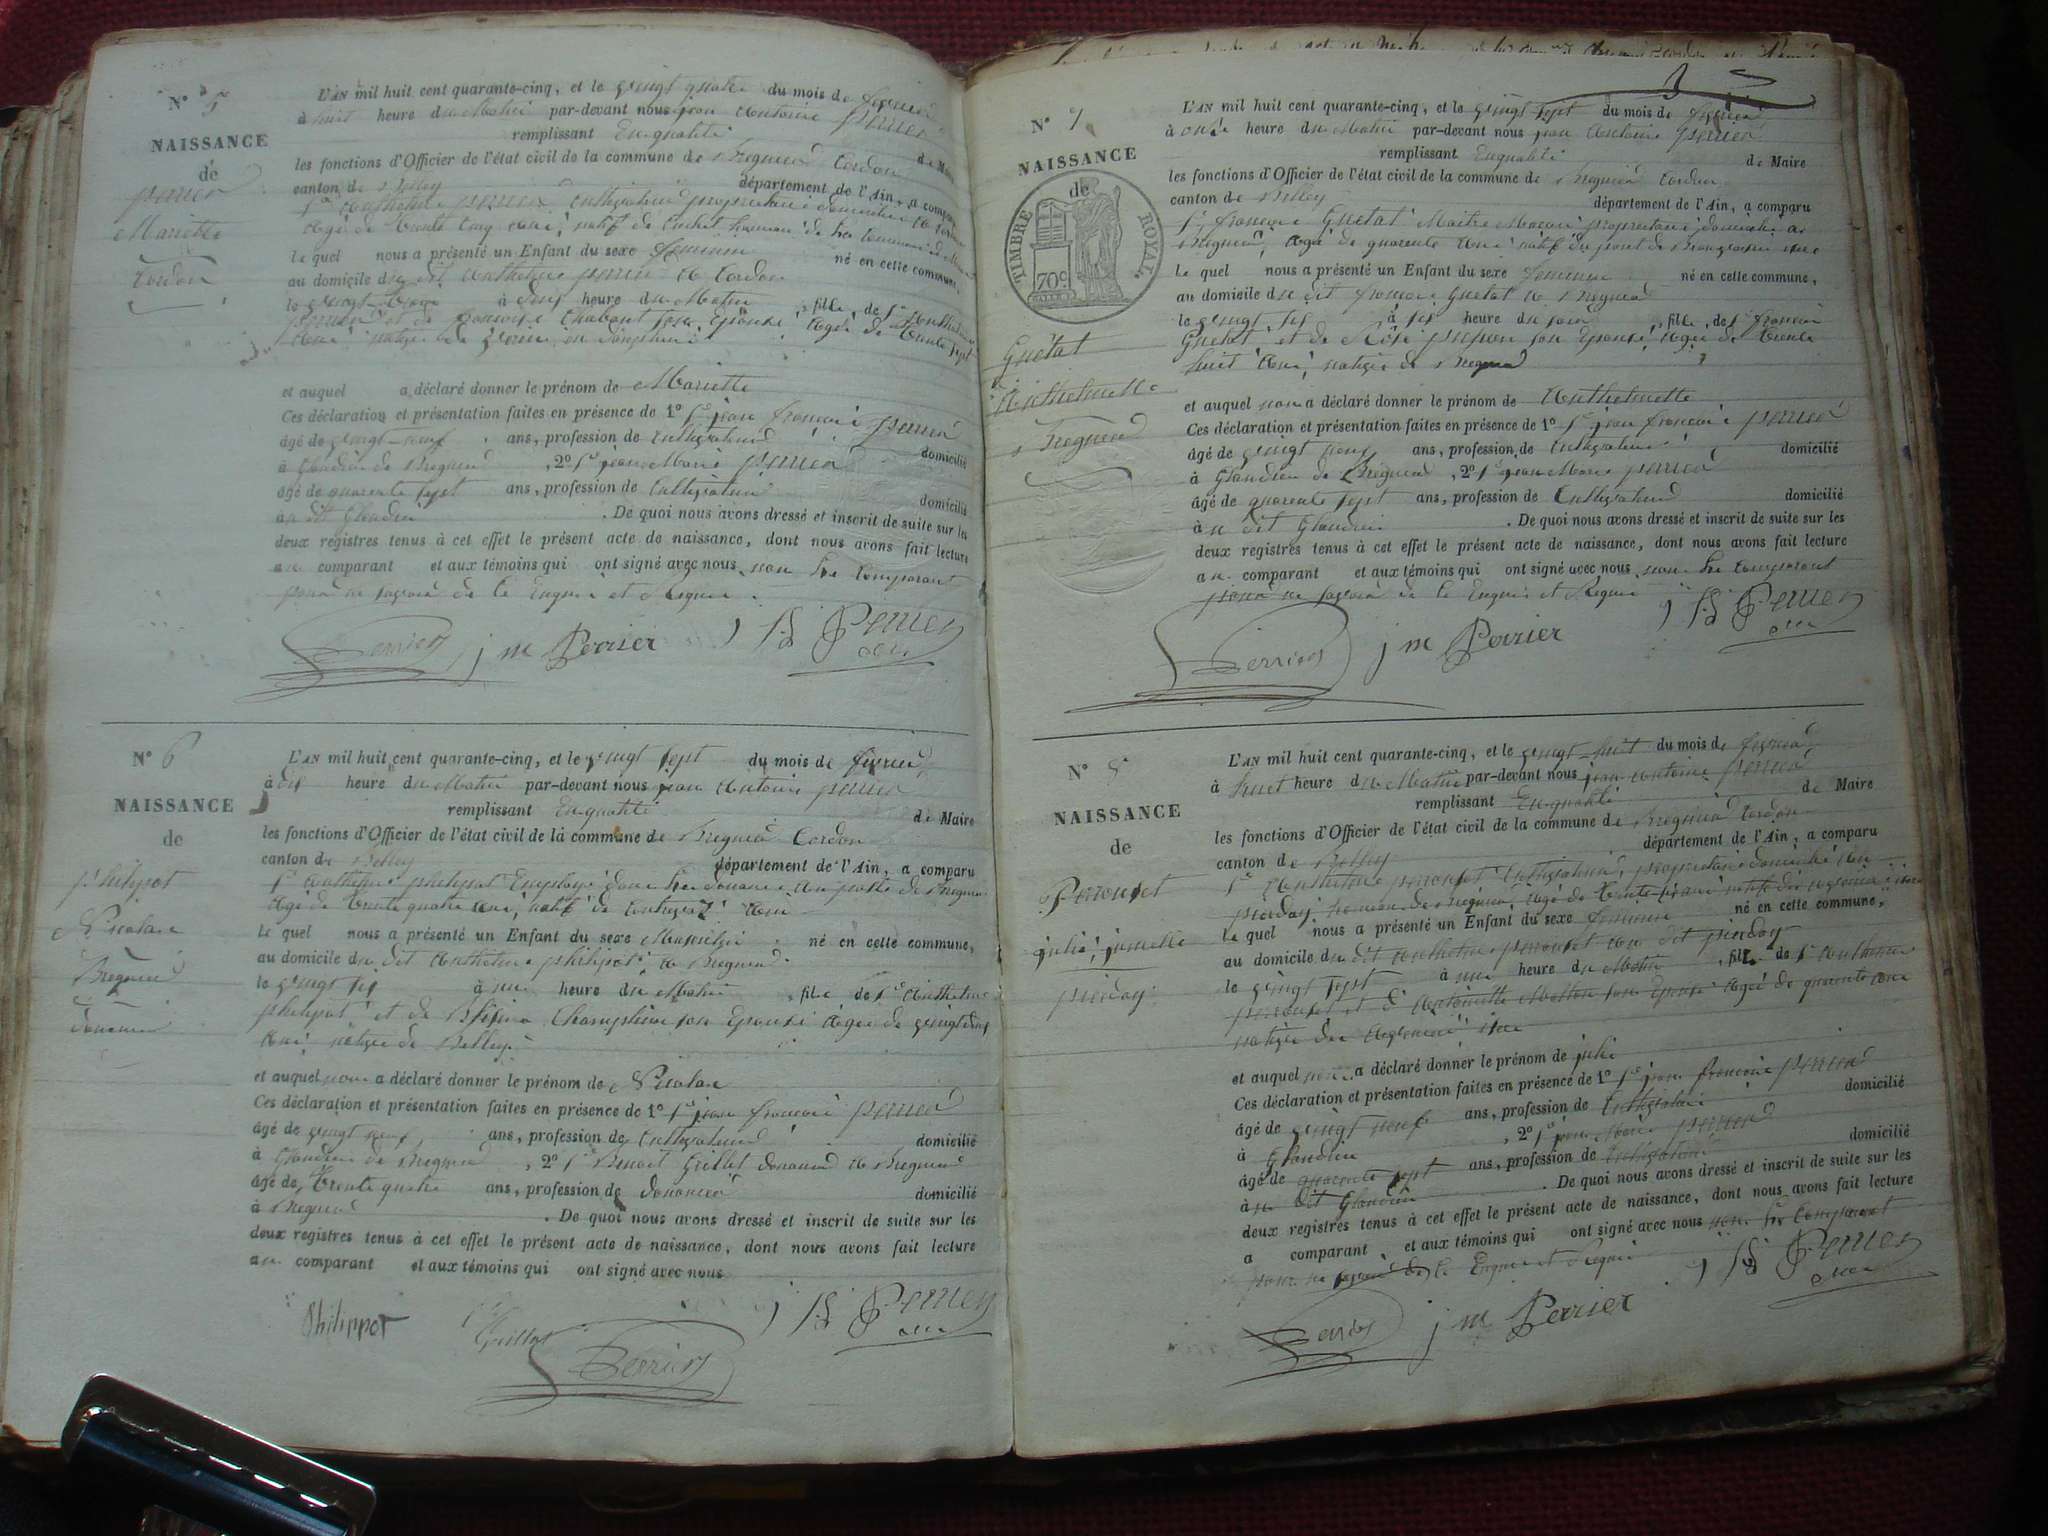 N° 5
NAISSANCE
de
perrier
Mariette
Cordon
L'AN mil huit cent quarante-cinq, et le vingt quatre du mois de fevrier
à huit heure du Matin par-devant nous jean Antoine perrier
remplissant Enqualité de Maire
les fonctions d'Officier de l'état civil de la commune de Bregnier Cordon
canton de Belley département de l'Ain, a comparu
Sr Anthelme perrier Cultivateur proprietaire domicilié à Cordon
Agé de trente cinq ans, natif de hameau de la Commune de
le quel nous a présenté un Enfant du sexe feminin né en cette commune,
au domicile du dit Anthelme perrier à Cordon
le vingt trois à heure du Matin, fille, de Sr Anthelme
perrier et de françoise Chabout son Epouse, Agée de trente sept
Ans natize de en Dauphiné
et auquel a déclaré donner le prénom de Mariette
Ces déclaration et présentation faites en présence de 1° Sr jean françois perrier
âgé de vingt-neuf ans, profession de Cultivateur domicilié
à Glandieu de Bregnier, 2° Sr jean Marie perrier
âgé de quarente sept ans, profession de Cultivateur domicilié
à dit Glandieu. De quoi nous avons dressé et inscrit de suite sur les
deux registres tenus à cet effet le présent acte de naissance, dont nous avons fait lecture
au comparant et aux témoins qui ont signé avec nous non le Comparant
pour ne savoir de le Enquis et Requis.
Perrier j m Perrier Perrier
N° 6
NAISSANCE
de
philipot
Nicolas
Bregnier
douanier
L'AN mil huit cent quarante-cinq, et le vingt sept du mois de fevrier
à dix heure du Matin par-devant nous jean Antoine perrier
remplissant Enqualité de Maire
les fonctions d'Officier de l'état civil de la commune de Bregnier Cordon
canton de Belley département de l'Ain, a comparu
Sr Anthelme philipot Employé dans les douanes au poste de Bregnier
Agé de trente quatre ans, natif de Ain
le quel nous a présenté un Enfant du sexe Masculin né en cette commune,
au domicile du dit Anthelme philipot à Bregnier
le vingt six à une heure du Matin, fils de Sr Anthelme
philipot et de son Epouse Agée de vingt
Ans natize de Belley
et auquel nous a déclaré donner le prénom de Nicolas
Ces déclaration et présentation faites en présence de 1° Sr jean françois perrier
âgé de vingt neuf, ans, profession de Cultivateur domicilié
à Glandieu de Bregnier, 2° Sr Benoit Grillet douanier à Bregnier
âgé de trente quatre ans, profession de douanier domicilié
à Bregnier. De quoi nous avons dressé et inscrit de suite sur les
deux registres tenus à cet effet le présent acte de naissance, dont nous avons fait lecture
au comparant et aux témoins qui ont signé avec nous
Philippot Grillet Perrier
Perrier
N° 7
NAISSANCE
de
TIMBRE ROYAL.
70c
Guetat
Anthelmette
Bregnier
L'AN mil huit cent quarante-cinq, et le vingt sept du mois de fevrier
à onze heure du Matin par-devant nous jean Antoine perrier
remplissant Enqualité de Maire
les fonctions d'Officier de l'état civil de la commune de Bregnier Cordon
canton de Belley département de l'Ain, a comparu
Sr françois Guetat Maitre Maçon proprietaire domicilié à
Bregnier, Agé de quarente Ans natif du pont de Beauvoisin
le quel nous a présenté un Enfant du sexe feminin né en cette commune,
au domicile du dit françois Guetat à Bregnier
le vingt six à six heure du soir, fille, de Sr françois
Guetat et de Rose son Epouse, Agée de trente
huit Ans, natize de Bregnier
et auquel nous a déclaré donner le prénom de Anthelmette
Ces déclaration et présentation faites en présence de 1° Sr jean françois perrier
âgé de vingt neuf ans, profession de Cultivateur domicilié
à Glandieu de Bregnier, 2° Sr jean Marie perrier
âgé de quarente sept ans, profession de Cultivateur domicilié
à dit Glandieu. De quoi nous avons dressé et inscrit de suite sur les
deux registres tenus à cet effet le présent acte de naissance, dont nous avons fait lecture
au comparant et aux témoins qui ont signé avec nous non le Comparant
pour ne savoir de le Enquis et Requis
Perrier j m Perrier Perrier
N° 8
NAISSANCE
de
Perrouset
julie, jumelle
pierday
L'AN mil huit cent quarante-cinq, et le vingt-huit du mois de fevrier
à huit heure du Matin par-devant nous jean Antoine perrier
remplissant Enqualité de Maire
les fonctions d'Officier de l'état civil de la commune de Bregnier Cordon
canton de Belley département de l'Ain, a comparu
Sr Anthelme perrouset Cultivateur, proprietaire domicilié au
pierday, hameau de Bregnier, Agé de trente
le quel nous a présenté un Enfant du sexe feminin né en cette commune,
au domicile du dit Anthelme perrouset au dit pierday
le vingt sept à une heure du Matin, fille de Sr Anthelme
perrouset et d'Antoinette son Epouse Agée de quarente ans
natize
et auquel nous a déclaré donner le prénom de julie
Ces déclaration et présentation faites en présence de 1° Sr jean françois perrier
âgé de vingt neuf ans, profession de Cultivateur domicilié
à Glandieu, 2° Sr jean Marie perrier
âgé de quarente sept ans, profession de Cultivateur domicilié
à dit Glandieu. De quoi nous avons dressé et inscrit de suite sur les
deux registres tenus à cet effet le présent acte de naissance, dont nous avons fait lecture
a comparant, et aux témoins qui ont signé avec nous non le Comparant
pour ne savoir de le Enquis et Requis
Perrier j m Perrier Perrier